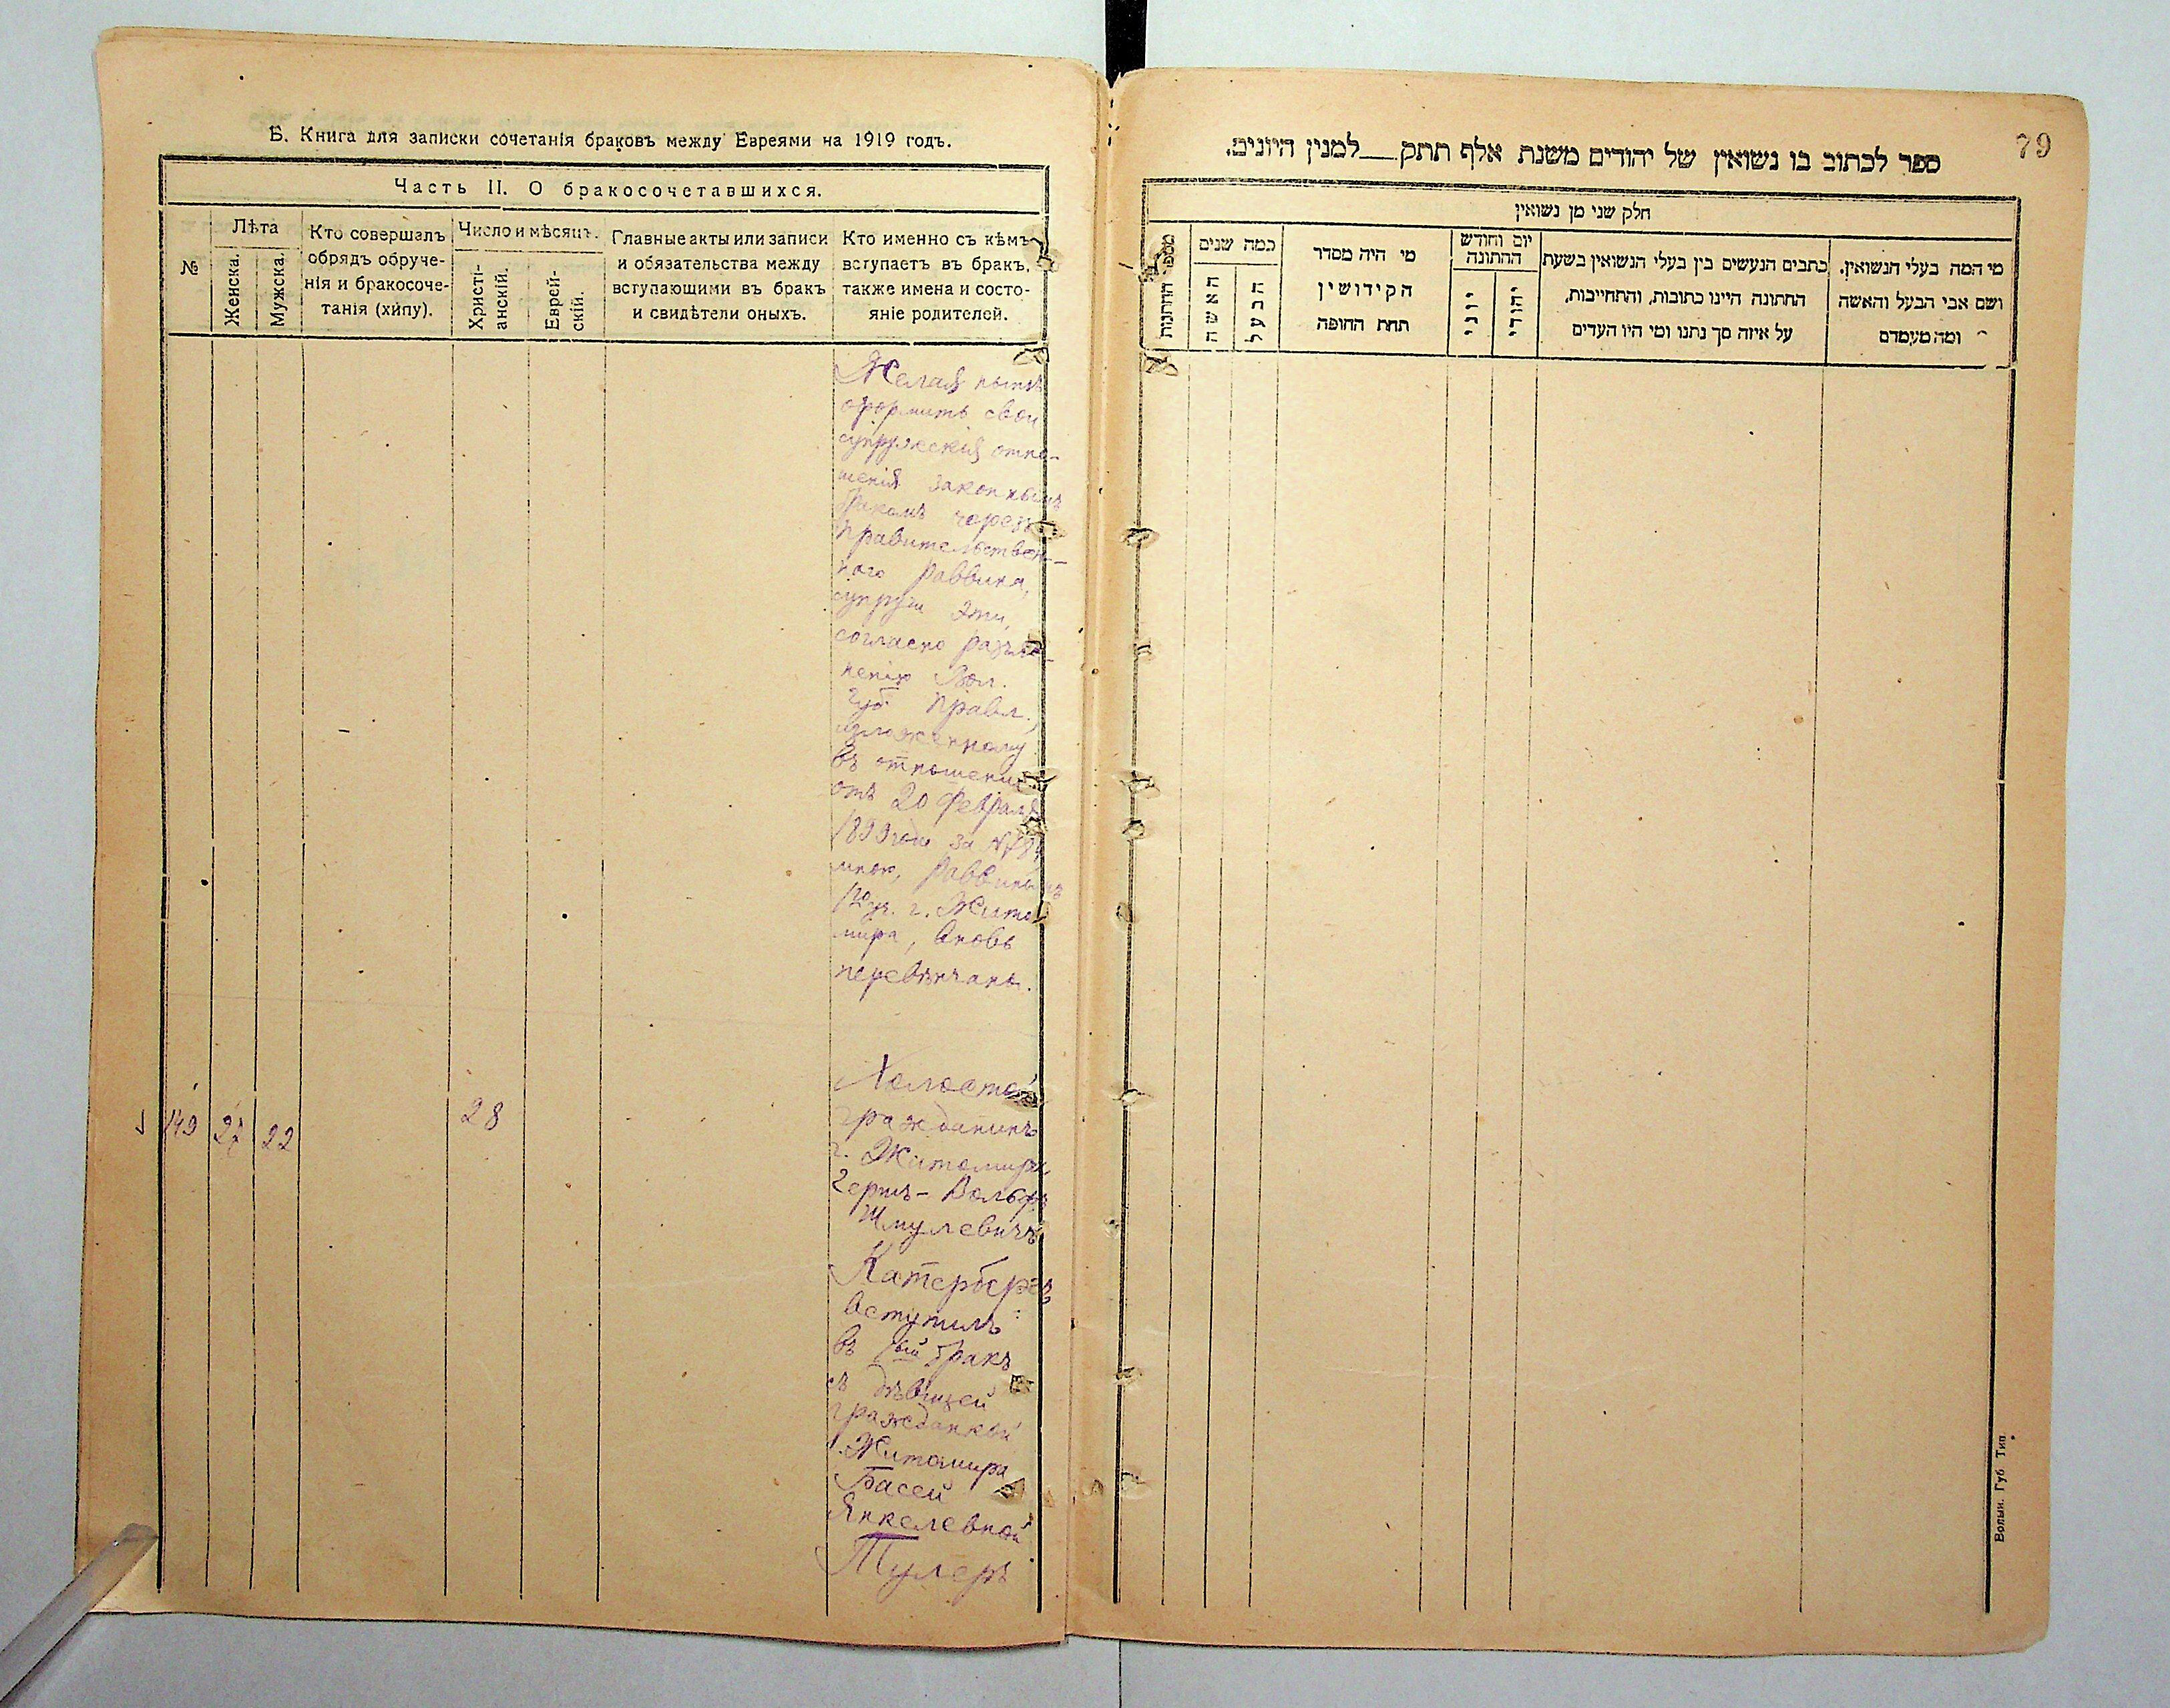 Б. Книга для записки сочетанія браковъ между Евреями на 1919 годъ.
Часть II. О бракосочетавшихся.
№
Лѣта
Женска.
Мужска.
Кто совершалъ
обрядъ обруче-
нія и бракосоче-
танія (хипу).
Число и мѣсяцъ.
Христі-
анскій.
Еврей-
скій.
Главные акты или записи
и обязательства между
вступающими въ бракъ
и свидѣтели оныхъ.
Кто именно съ кѣмъ
вступаетъ въ бракъ,
также имена и состо-
яніе родителей.
Желая нынѣ
оформить свои
супружескія отно-
шенія законнымъ
бракомъ черезъ
Правительствен-
наго Раввина,
супруги эти,
согласно разъяс-
ненію Вол.
Губ. Правл.,
изложенному
въ отношеніи
отъ 20 Февраля
1899 года за №
мною, Раввиномъ
г. Жито-
мира, вновь
перевѣнчаны.
149 27 22 28
Холостой
гражданинъ
г. Житомира
Гершъ-Вольфъ
Шмулевичъ
Катербергъ
вступилъ
въ 1ый бракъ
съ дѣвицей
гражданкой
г. Житомира
Басей
Янкелевной
Тулеръ
79
ספר לכתוב בו נשואין של יהודים משנת אלף תתק__למנין היונים.
חלק שני מן נשואין
מספר החתונות
כמה שנים
האשה
הבעל
מי היה מסדר
הקידושין
תחת החופה
יום וחודש
החתונה
יוני
יהודי
כתבים הנעשים בין בעלי הנשואין בשעת
החתונה היינו כתובות, והתחייבות,
על איזה סך נתנו ומי היו העדים
מי המה בעלי הנשואין.
ושם אבי הבעל והאשה
ומה מעמדם
Волын. Губ Тип